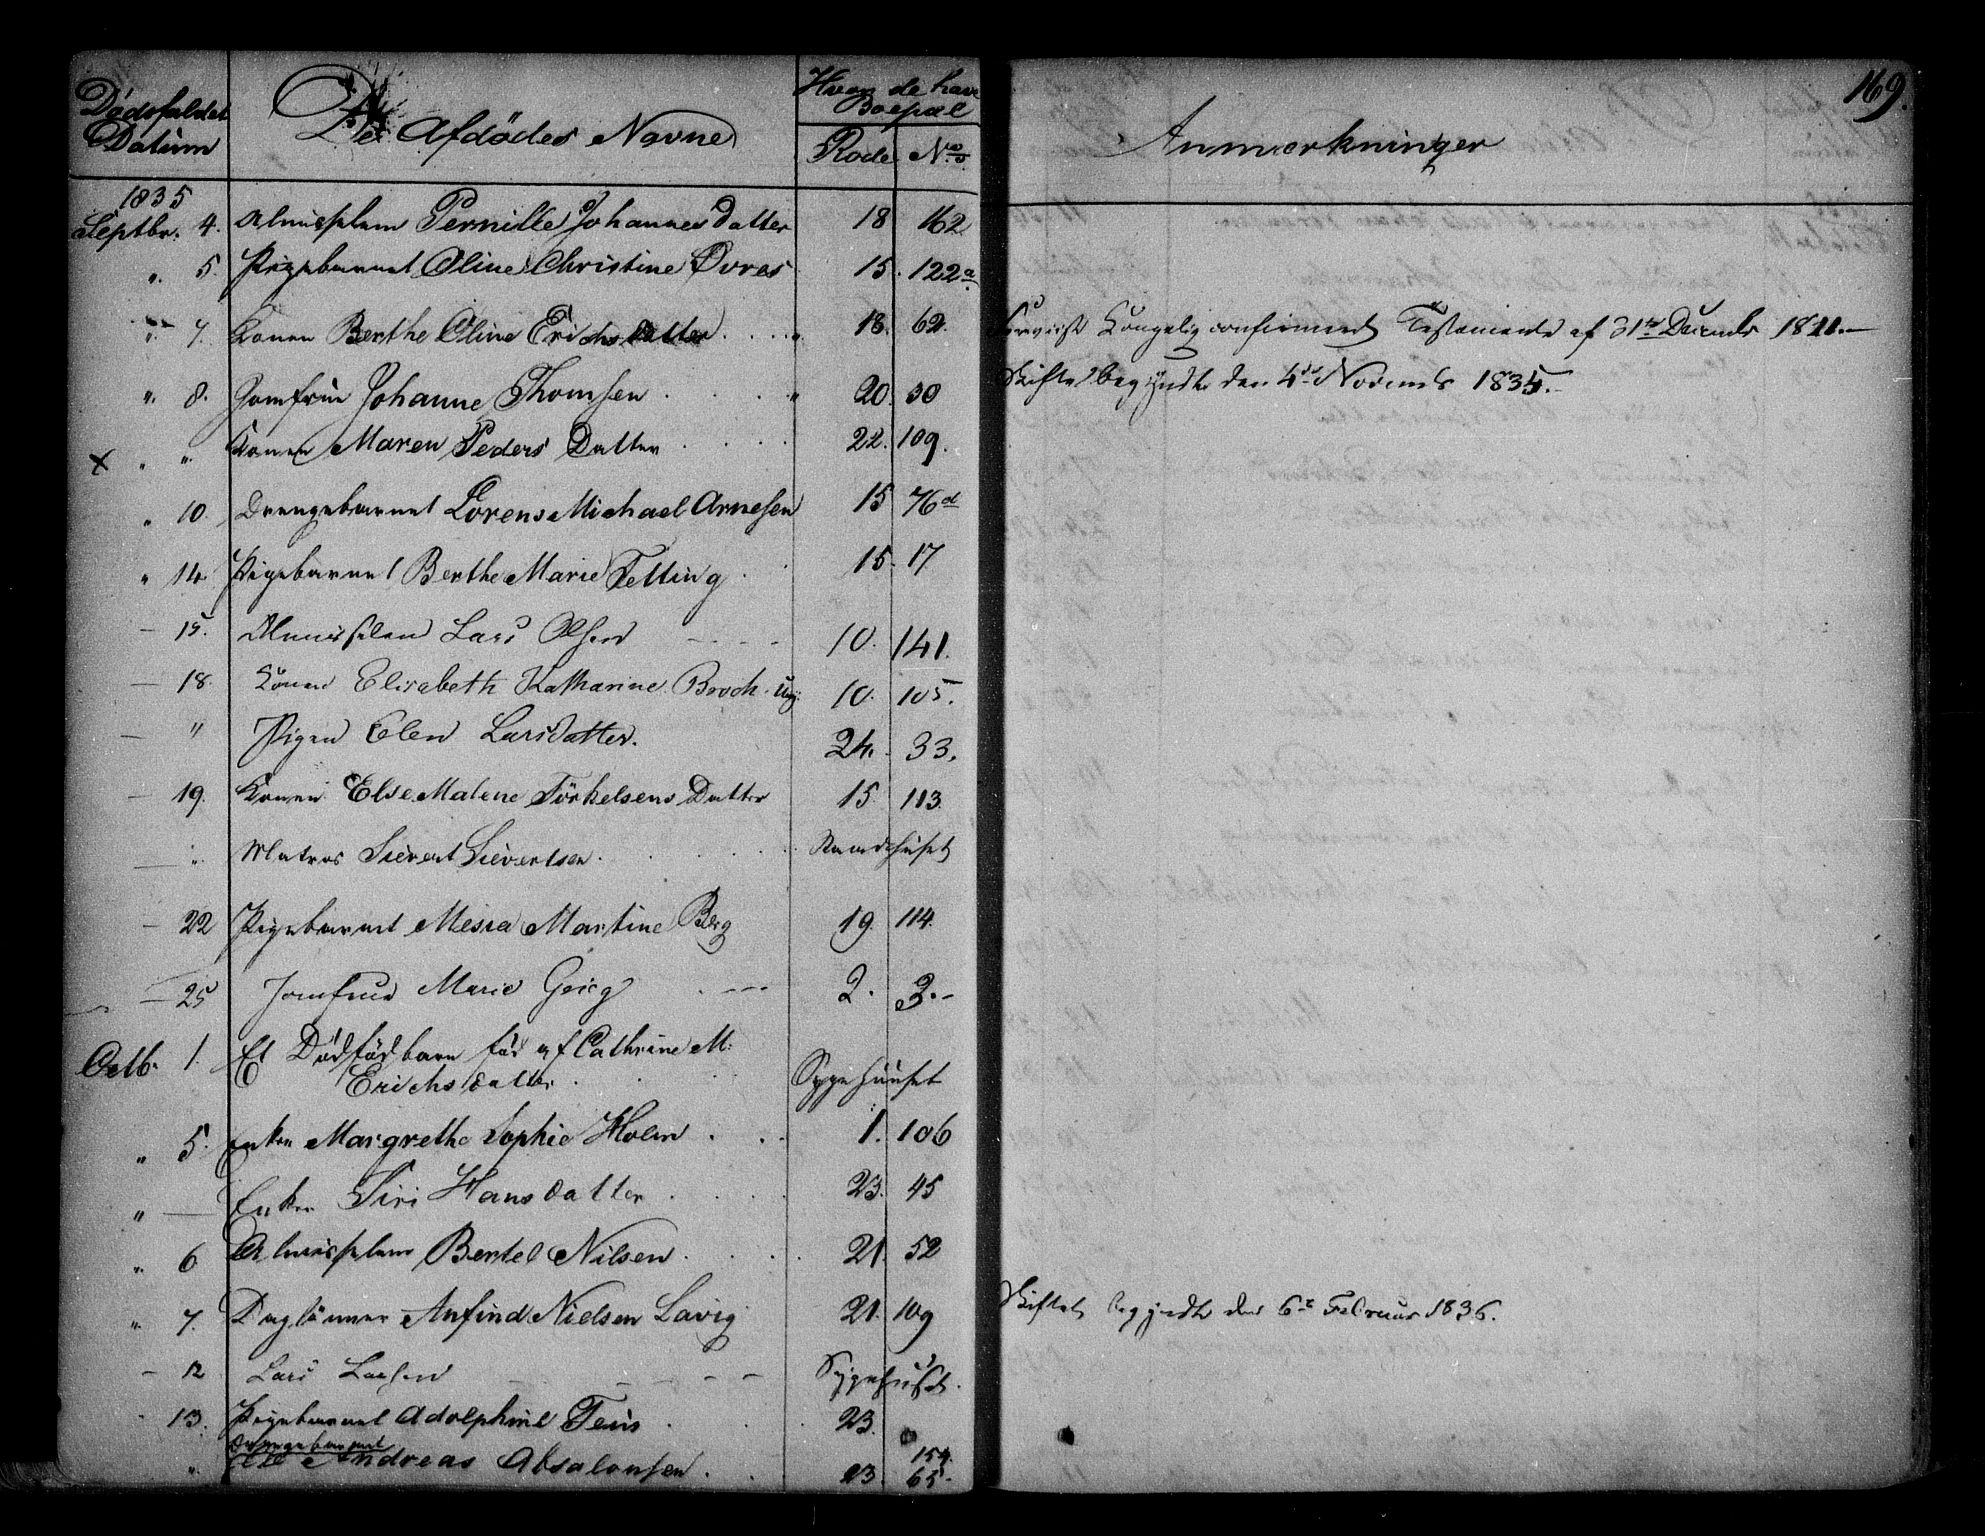 169.
Dødsfaldet Datum
De Afdødes Navne
Hvor de have Boepæl
Rode No
Anmærkninger
1835
Septbr. 4. Almisselem Pernille Johannes Datter 18 162
" 5. Pigebarnet Oline Christine Øvres 15. 122a
" 7. Konen Berthe Oline Erichsdatter 18. 62. Kongelig confirmeret Testamente af 31te Decembr
" 8. Jomfrue Johanne Thomsen 20. 30 Skiftet begyndt den 4de Novembr 1835.
x " " Konen Maren Peders Datter 22. 109.
" 10. Drengebarnet Lorens Michael Arnesen 15 76d
" 14. Pigebarnet Berthe Marie Tetting 15. 17
- 15. Almisselem Lars Olsen 10. 141.
- 18. Konen Elisabeth Katharine Broch 10. 105.
- " Pigen Elen Larsdatter. 24. 33.
- 19. Konen Else Malene Törkelsens Datter 15 113.
" Matros Sievert Sievertsen. Raadhuset
- 22 Pigebarnet Messa Martine Berg 19. 114.
- 25 Jomfrue Marie Grieg 2. 3.-
Octb. 1. Et Dødfød barn fød af Cathrine M:
Erichsdatter. Sygehuuset
" 5. Enken Margrethe Sophie Holm 1. 106
" - Enken Siri Hansdatter 23. 45
" 6 Almisselem Bertel Nilsen 21. 52
" 7. Daglönner Anfind Nielsen Lavig 21. 109 Skiftet begyndt den 6te Februar 1836.
- 12 Lars Larsen Sygehuset.
- 13. Pigebarnet Adolphine Teus 23.
Drengebarnet
154.
" Andreas Absalonsen 23. 65.